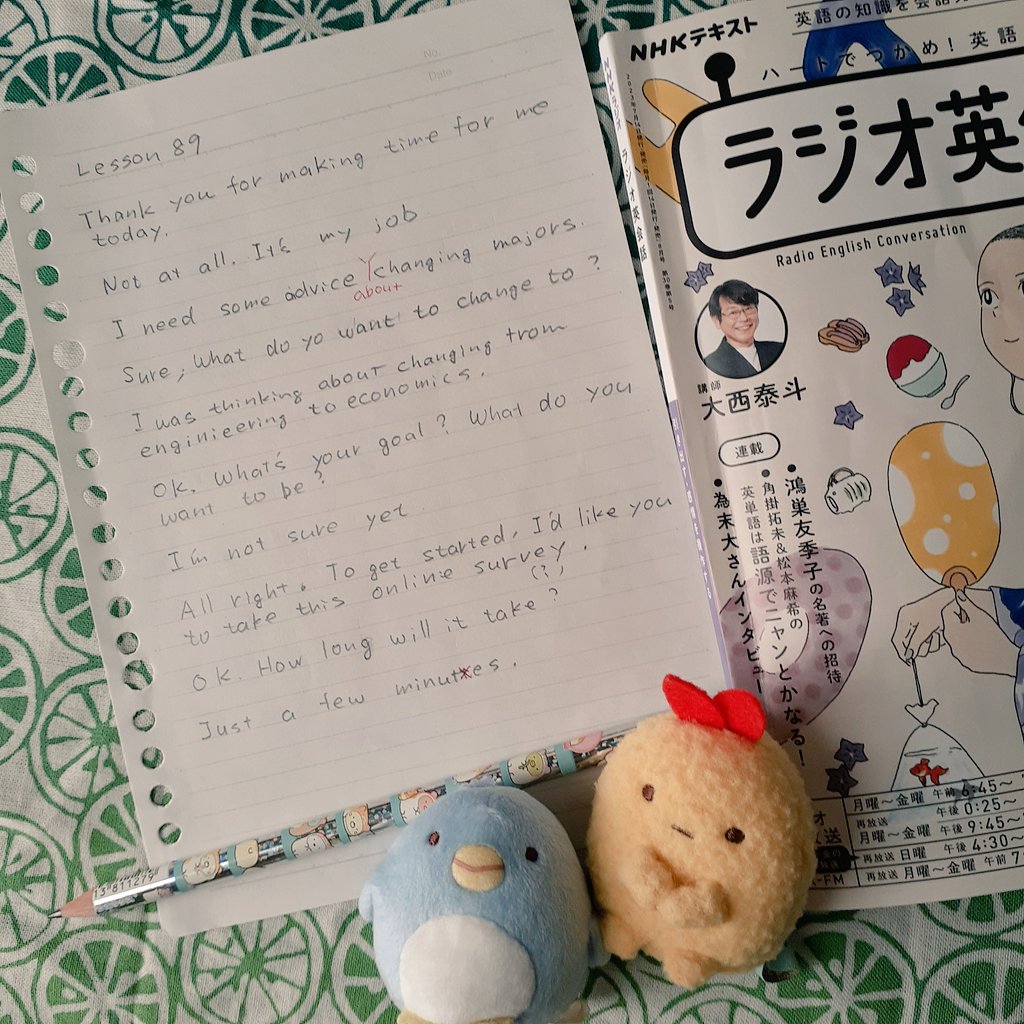 No.
Date
Lesson 89
Thank you for making time for me
today.
Not at all. It's my job
I need some advice changing majors.
about
Sure, What do yo want to change to?
I was thinking about changing from
enginieering to economics.
OK. What's your goal? What do you
want to be?
I'm not sure yet.
All right. To get started, I'd like you
to take this online survey.
(?)
OK. How long will it take?
Just a few minutes.
NHKテキスト
英語の知識を会話
ハートでつかめ! 英語
ラジオ英
Radio English Conversation
NHKテキスト ラジオ英会話
講師
大西泰斗
連載
●鴻巣友季子の名著への招待
●角掛拓未&松本麻希の
英単語は語源でニャンとかなる!
●為末大さんインタビュー
月曜〜金曜 午前 6:45〜
再放送 午後 0:25〜
月曜〜金曜 午後 9:45〜
再放送 日曜 午後 4:30〜
再放送 月曜〜金曜 午前 7
放送
FM